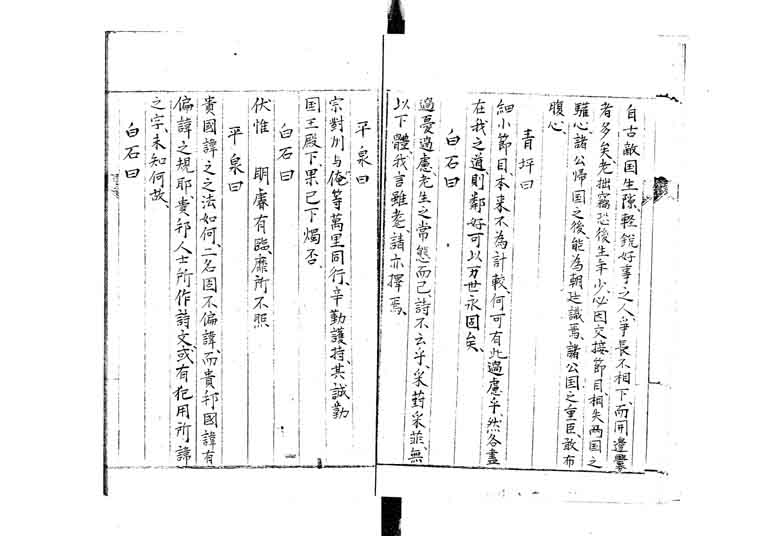 自古敵国生隙、軽銳好事之人、争長不相下、而開邉釁
者多矣、老拙竊恐後生年少、必因交接節目、相失両国之
驩心、諸公帰国之後、能為朝廷議焉、諸公国之重臣、敢布
腹心、
青坪曰
細小節目、本来不為計較、何可有此過慮乎、然各盡
在我之道、則鄰好可以万世永固矣、
白石曰
過憂過慮、老生之常態而已、詩不云乎、采葑采菲、無
以下體、我言雖耄、請亦擇焉、
平泉曰
宗對州与俺等萬里同行、辛勤護持、其誠勤
国王殿下、果已下燭否、
白石曰
伏惟　明睿有臨、靡所不照
平泉曰
貴國諱之之法如何、二名固不偏諱、而貴邦國諱有
偏諱之規耶、貴邦人士所作詩文、或有犯用所諱
之字、未知何故、
白石曰